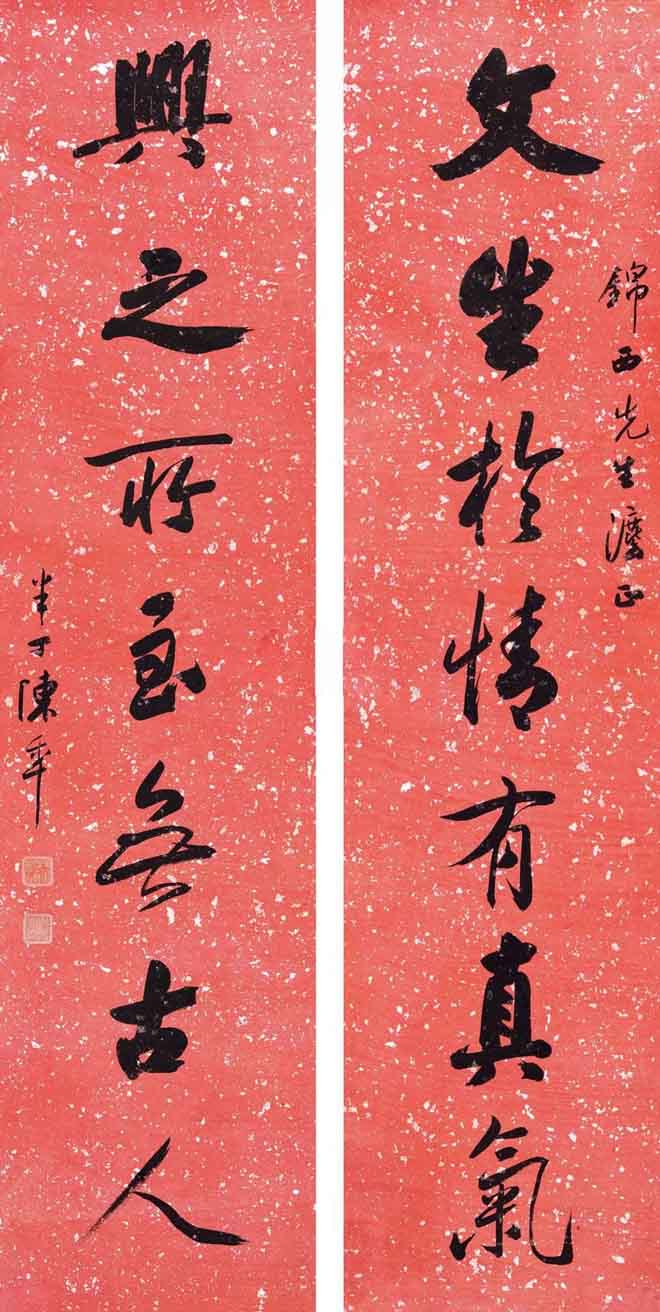 文生於情有真氣
錦西先生灋正
興之所至無古人
半丁陳年